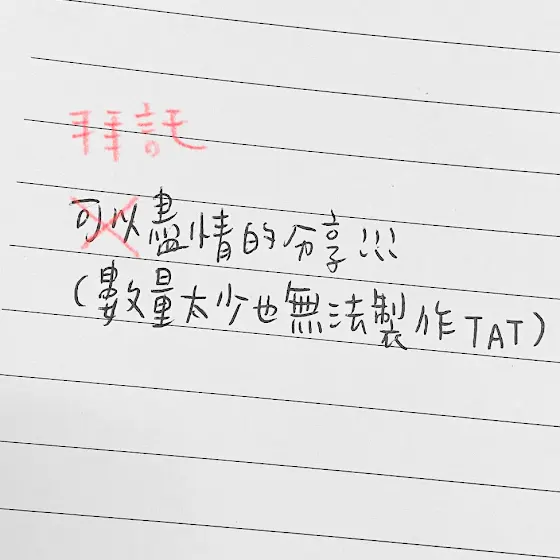 拜託
可以盡情的分享!!!
(數量太少也無法製作TAT)